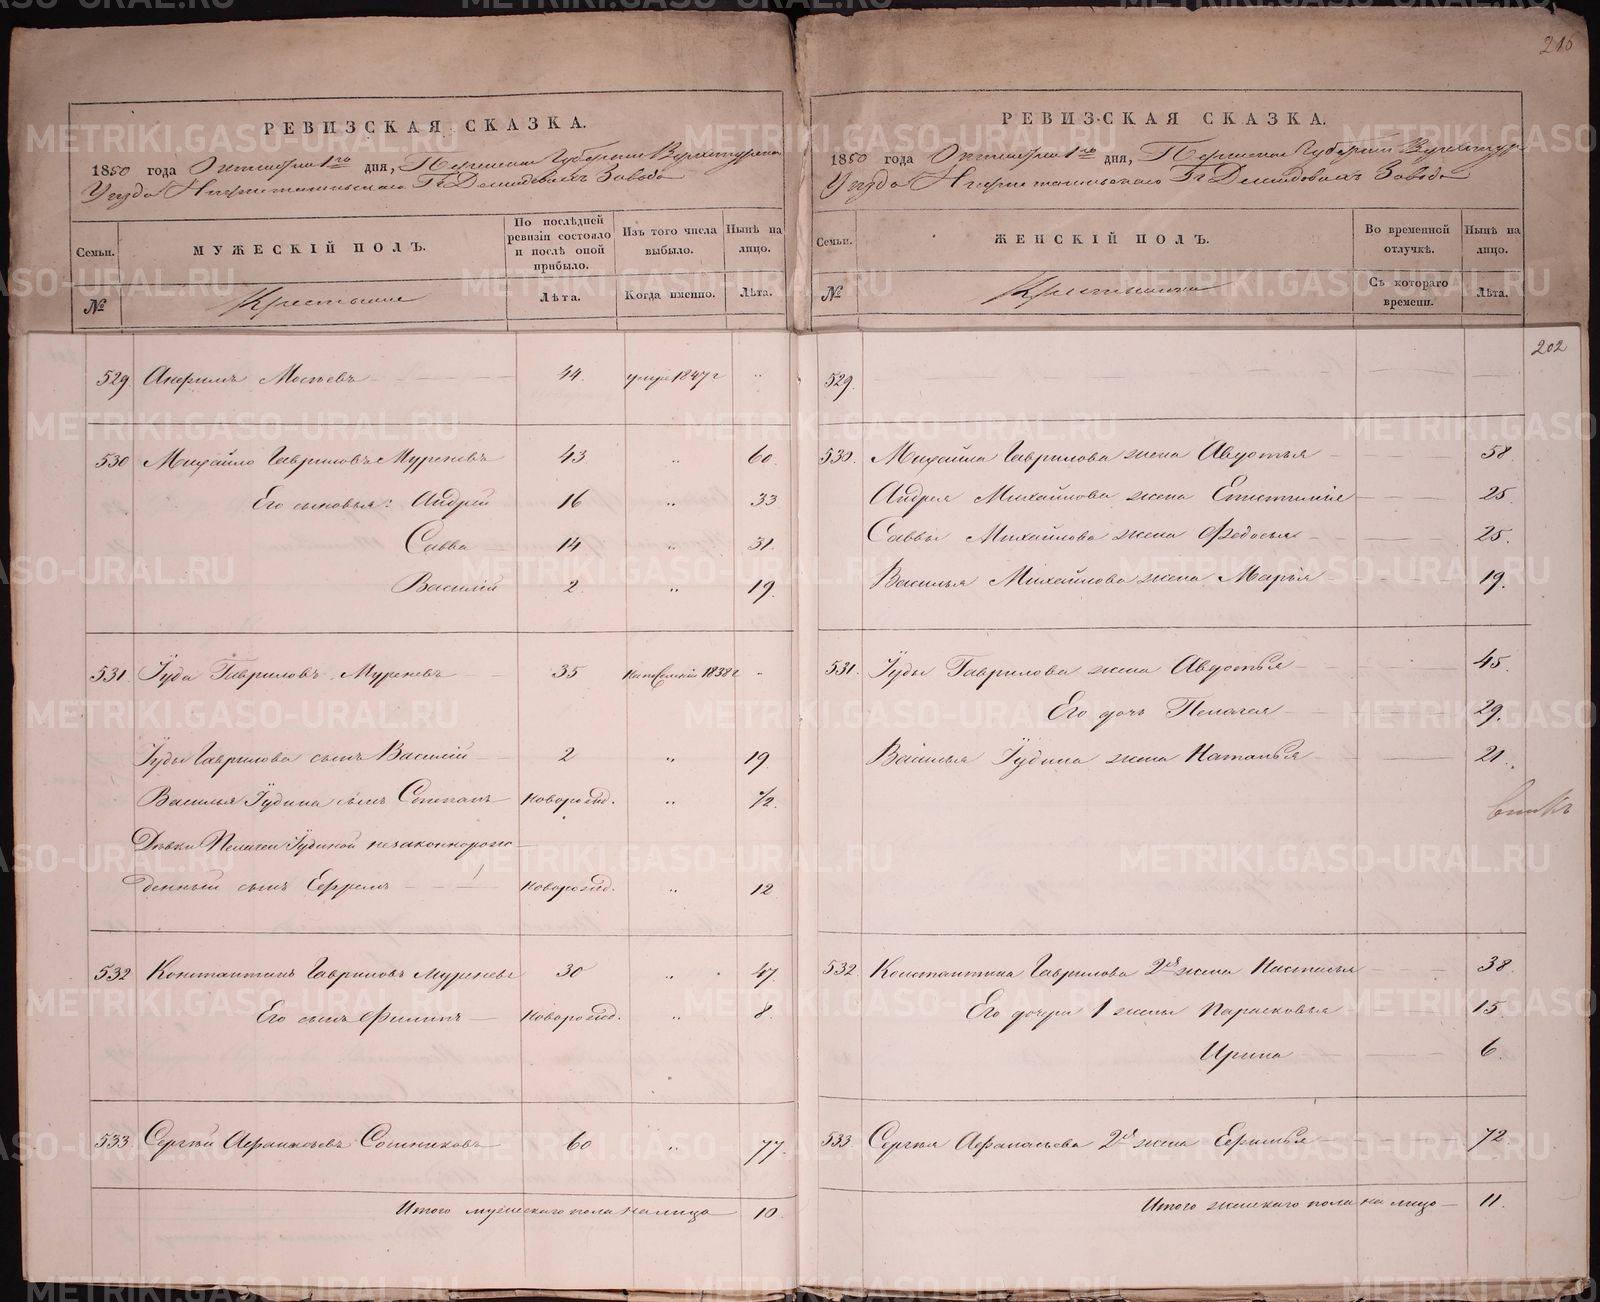 210
РЕВИЗСКАЯ СКАЗКА.
1850 года Октября 1го дня, Пермской Губернии Верхотурска
Уезда Нижнетагильскаго Гг Демидовыхъ Завода
Семьи.
МУЖЕСКІЙ ПОЛЪ.
По послѣдней ревизіи состояло и послѣ оной прибыло.
Изъ того числа выбыло.
Нынѣ на лицо.
№
Крестьяне
Лѣта.
Когда именно.
Лѣта.
529 Мосѣевъ 44. умре 1847 г "
530 Михайло Гавриловъ Муреневъ 43 " 60.
Его сыновья: Андрей 16 " 33
Савва 14 " 31.
Василій 2 " 19.
531 Іуда Гавриловъ Муреневъ 35 1838 г "
Іуды Гаврилова сынъ Василій 2 " 19
Василья Іудина сынъ Степанъ новорожд. " 1/2.
Дѣвки Пелагеи Іудиной незаконнорож-
денный сынъ Ефремъ новорожд. " 12
532 Константинъ Гавриловъ Муреневъ 30 " 47.
Его сынъ Филипъ новорожд. " 8.
533 Сергѣй Афанасьевъ Сошниковъ 60 " 77.
Итого мужескаго пола на лицо 10.
РЕВИЗСКАЯ СКАЗКА.
1850 года Октября 1го дня, Пермской Губерніи Верхотур
Уезда Нижнетагильскаго Гг Демидовыхъ Завода
Семьи.
ЖЕНСКІЙ ПОЛЪ.
Во временной отлучкѣ.
Нынѣ на лицо.
№
Крестьянки
Съ котораго времени.
Лѣта.
202
529.
530. Михайла Гаврилова жена Авдотья 58.
Андрея Михайлова жена Епистимія 25.
Саввы Михайлова жена Федосья 25.
Василья Михайлова жена Марья 19.
531. Іуды Гаврилова жена Авдотья 45.
Его дочь Пелагея 29.
Василья Іудина жена Наталья 21.
532. Константина Гаврилова 2я жена Настасья 38.
Его дочери 1 жены Парасковья 15.
Ирина 6.
533 Сергѣя Афанасьева 2я жена 72
Итого женскаго пола на лицо 11.
METRIKI.GASO-URAL.RU